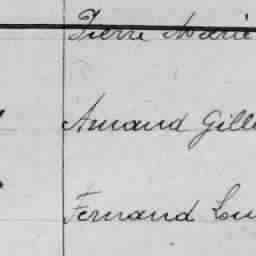 Pierre Marie
Armand Gill
Fernand Lou